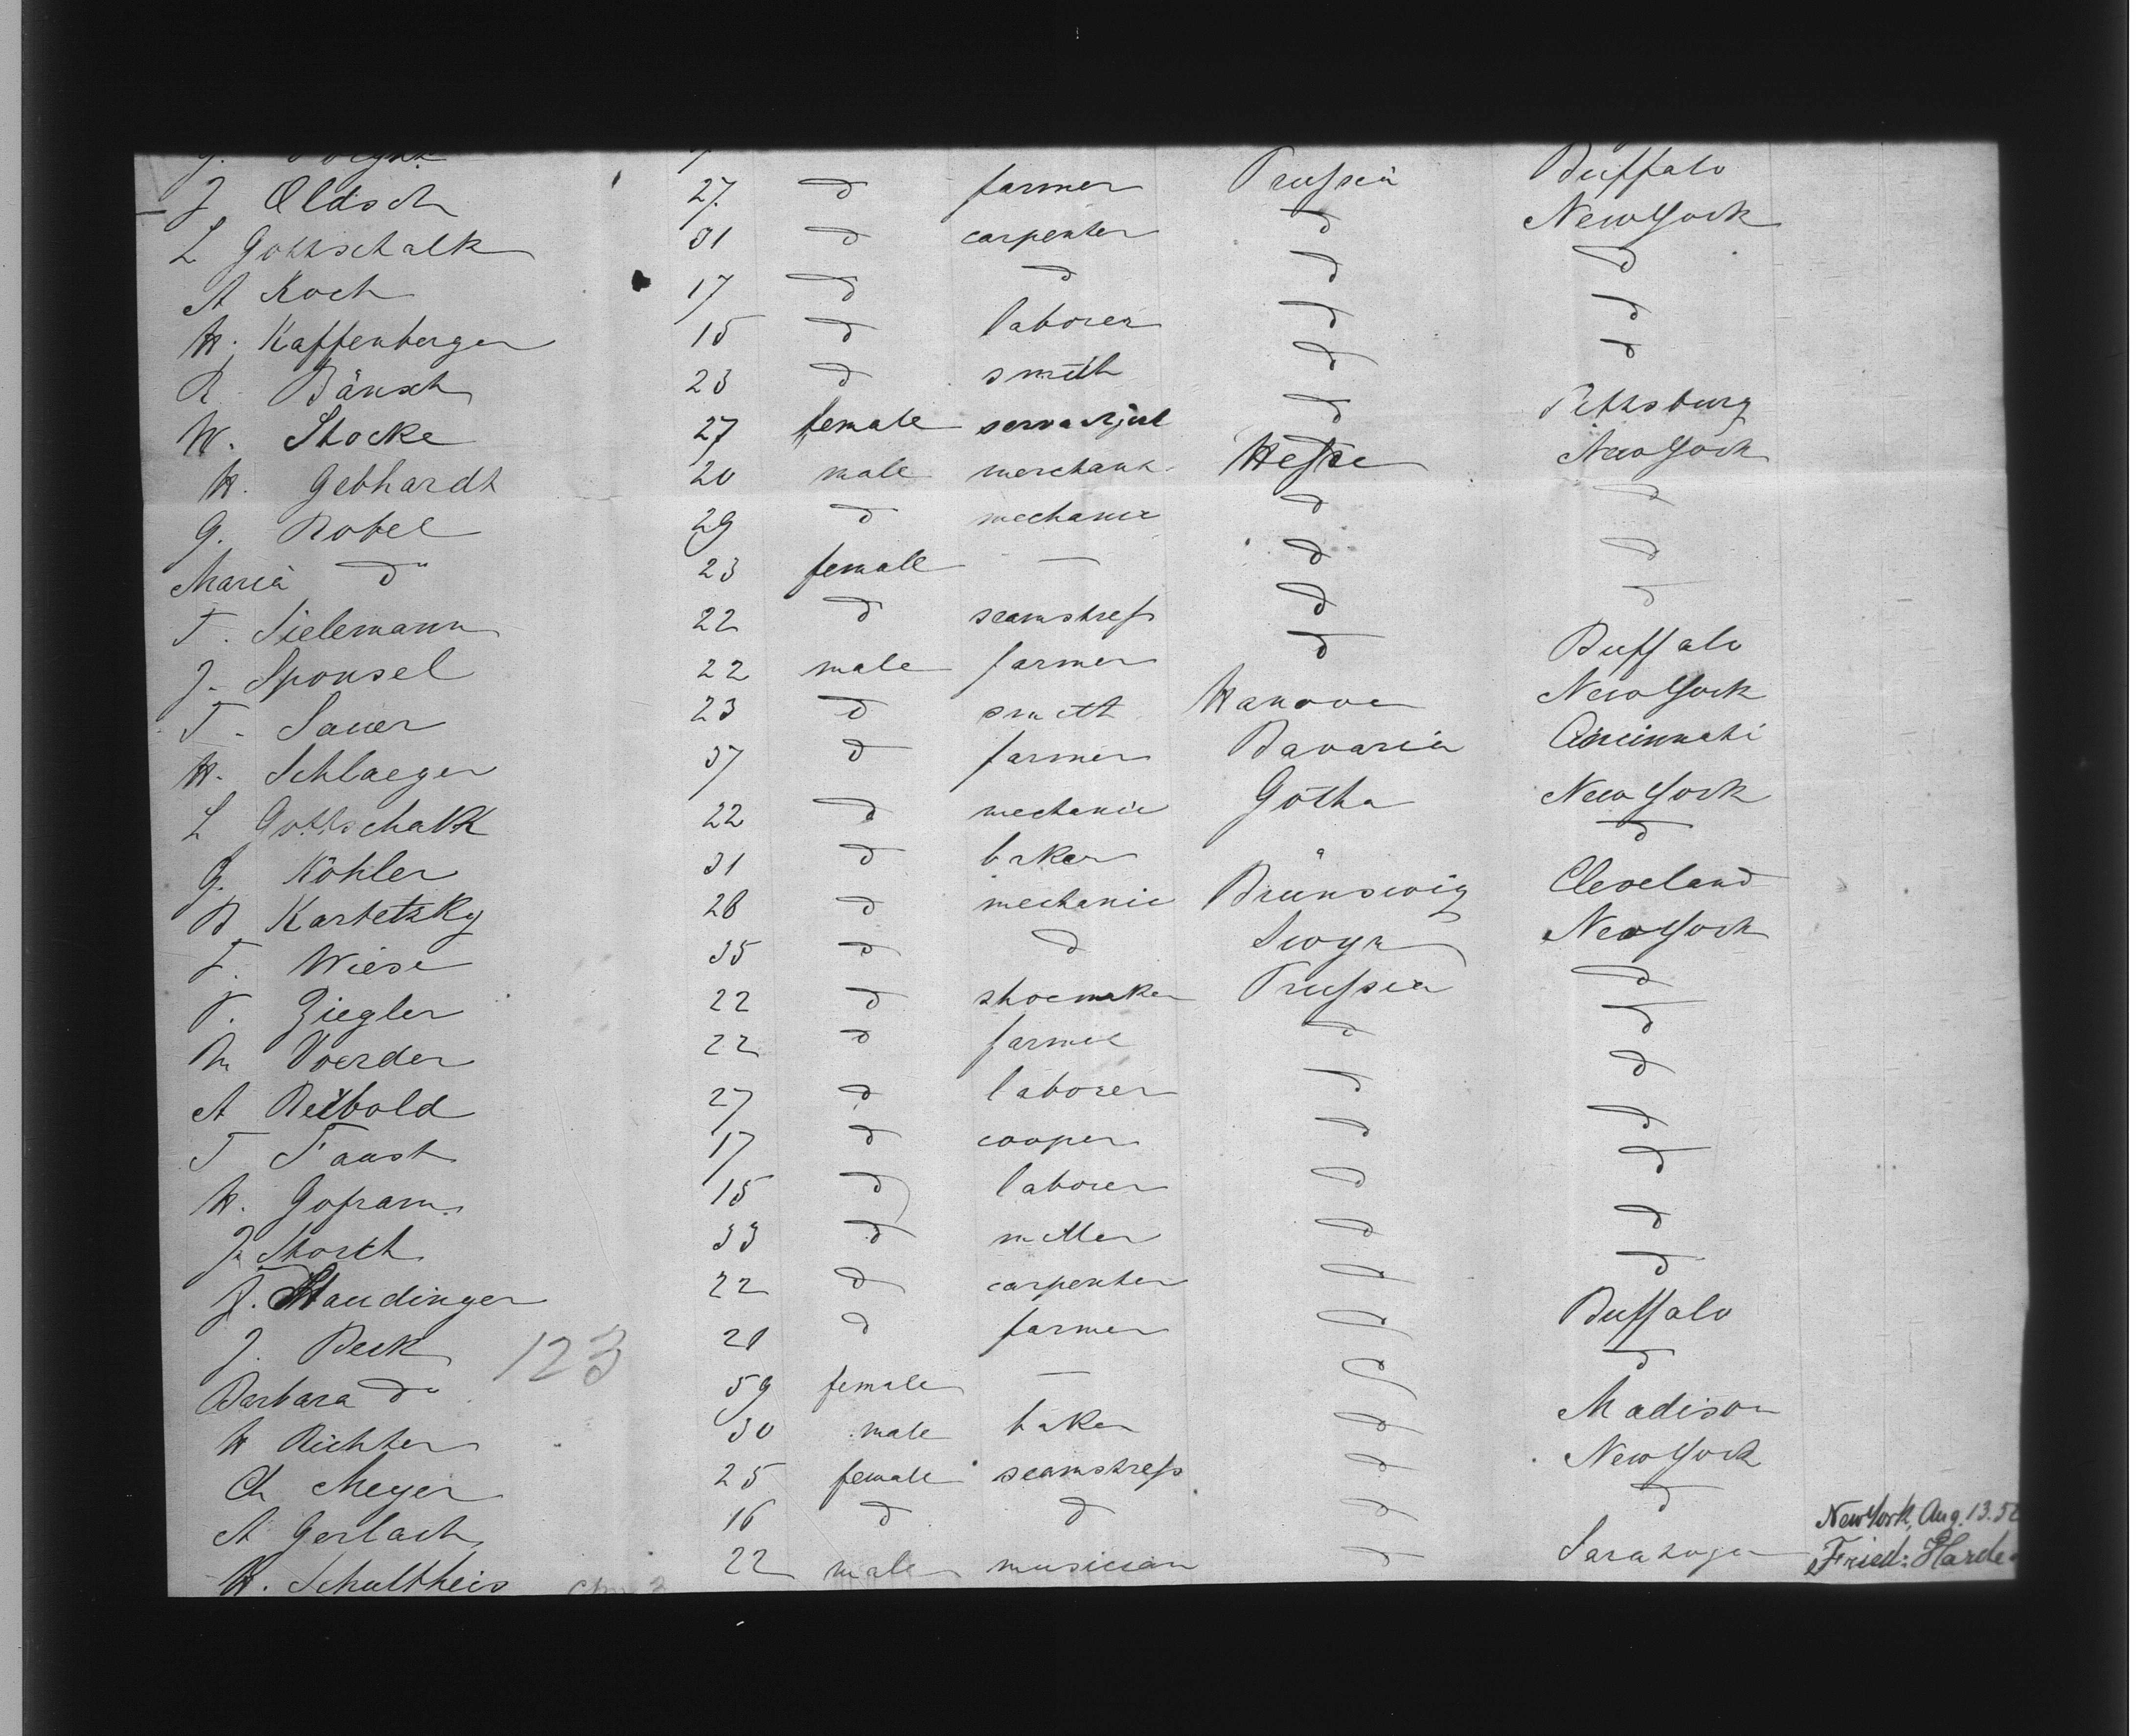 J. Oldsch 27. d farmer Prussia Buffalo
L Gottschalk 31 d carpenter d New York
A Koch 17 d d d d
H. Kaffenberger 15 d laborer d d
R Bänsch 23 d smith d d
W. Stocke 27 female d Pittsburg
H. Gebhardt 20 male merchant Hesse New York
G. Robel 29 d mechanic d d
Maria do 23 female — d d
T. Sielemann 22 d seamstress d d
J. Sponsel 22 male farmer d Buffalo
T. Sauer 23 d smith Hanover New York
H. Schlaeger 37 d farmer Bavaria Cincinnati
L Gottschalk 22 d mechanic Gotha New York
G. Köhler 31 d baker d
B Kartetzky 28 d mechanic Brunswig Cleveland
F. Wiese 35 d d New York
P. Ziegler 22 d shoemaker Prussia d
M Voerder 22 d farmer d d
A Reibold 27 d laborer d d
T Faust 17 d cooper d d
H. 15 d laborer d d
J. Storch 33 d miller d d
J. Staudinger 22 d carpenter d d
J. Beck 123 21 d farmer d Buffalo
Barbara do 59 female — d d
H Richter 30 male baker d Madison
Ch Meyer 25 female seamstress d New York
A Gerlach 16 d d d d
H. Schultheis 22 male musician d Saratoga
New York, Aug. 13. 5
Fried: Harde